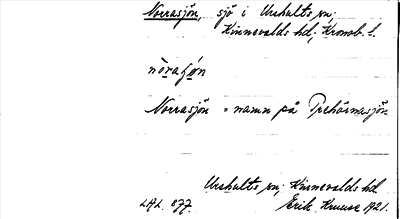 Norrasjön, sjö i Urshults sn;
Kinnevalds hd; Kronob. l.
Norrasjön = namn på Trehörnasjön
Urshults sn; Kinnevalds hd.
LAL 877. Erik Kruuse 1921.